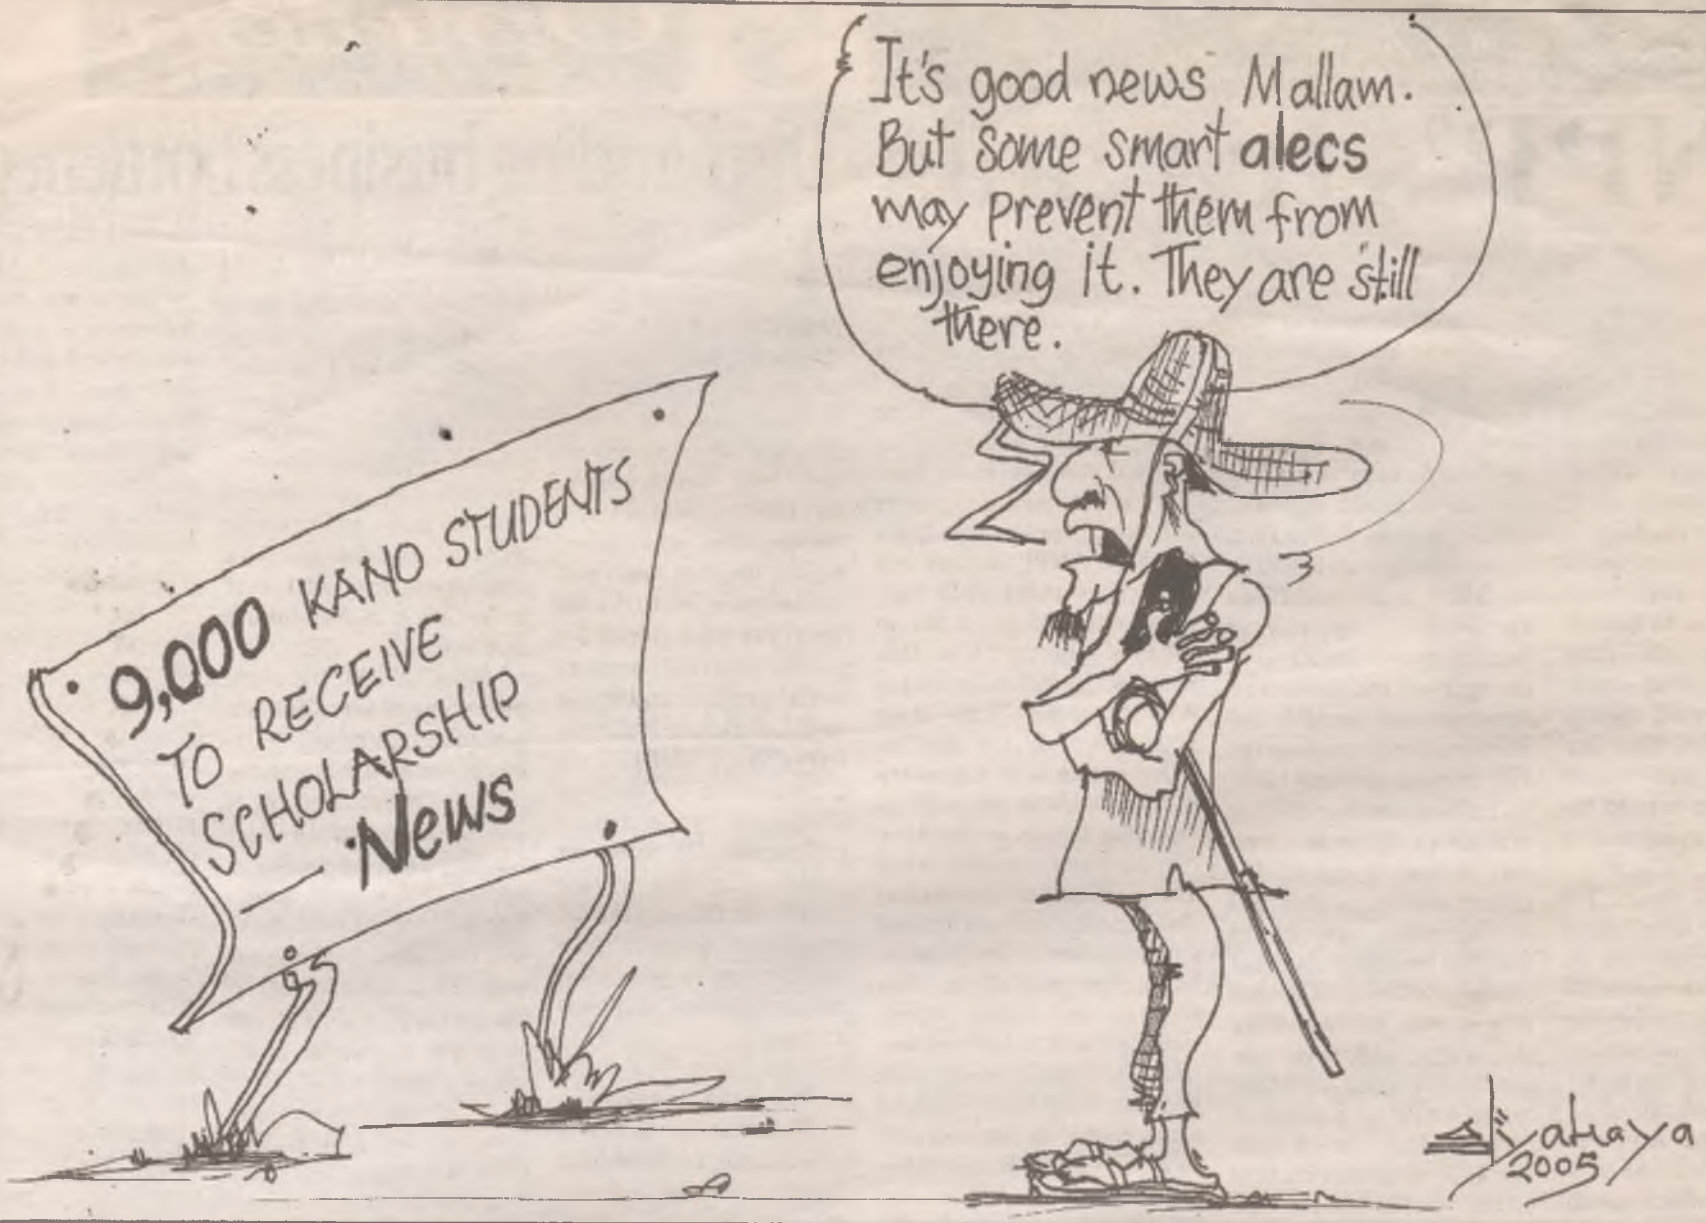 It's good news, Mallam.
But some smart alecs
may prevent them from
enjoying it. They are still
there.
9,000 KANO STUDENTS
TO RECEIVE
SCHOLARSHIP
— News
yahaya
2005